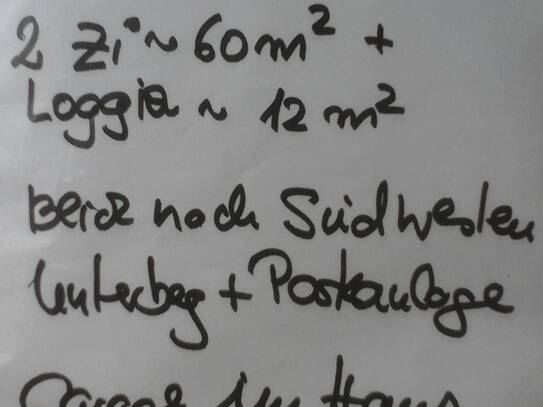 2 Zi ~ 60 m² +
Loggia ~ 12 m²
Blick nach Südwesten
Unterberg + Parkanlage
Garage im Haus